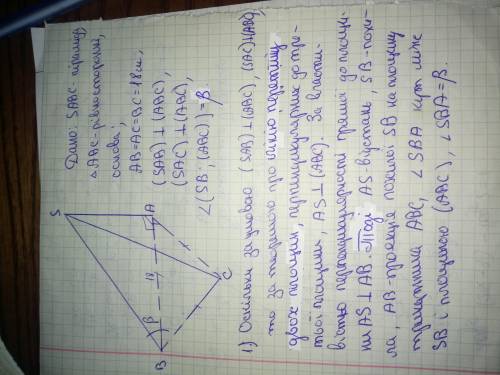 Дано: SABC - піраміда,
△ABC - рівносторонній,
основа,
AB=AC=BC=18 см,
(SAB)⊥(ABC),
(SAC)⊥(ABC),
∠(SB; (ABC))=β
S
A
B
C
18
β
1) Оскільки за умовою (SAB)⊥(ABC), (SAC)⊥(ABC),
то за теоремою про лінію перетину
двох площин, перпендикулярних до тре-
тьої площини, AS⊥(ABC). За власти-
вістю перпендикулярності прямої до площи-
ни AS⊥AB. Тоді AS - відстань, SB - похи-
ла, AB - проекція похилої SB на площину
трикутника ABC, ∠SBA кут між
SB і площиною (ABC), ∠SBA=β.